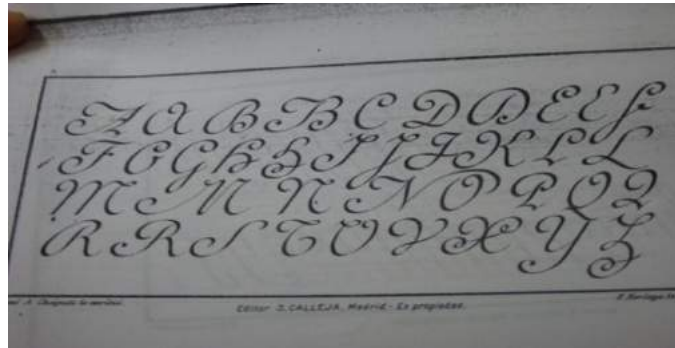 A A B B C D D E E F
F G G H H I J J K L L
M N N N O P P Q Q
R R S T U V X Y Z
Editor S. CALLEJA. Madrid - Es propiedad.